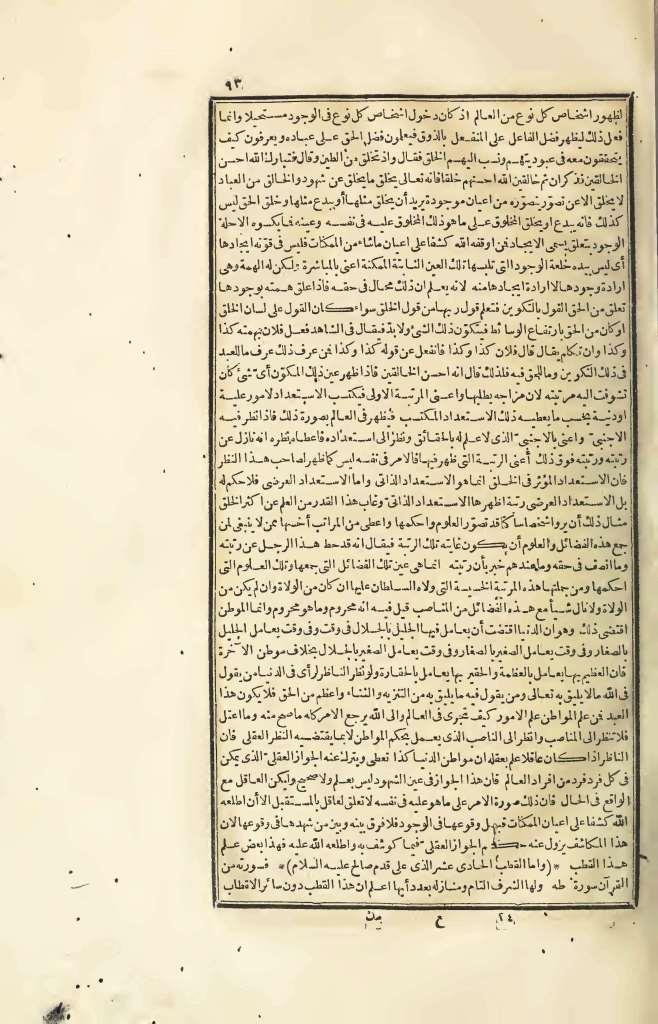 ٩٣
لظهور اشخاص كل نوع من العالم اذ كان دخول اشخاص كل نوع فى الوجود مستحيلا وانما
فعل ذلك ليظهر فضل الفاعل على المنفعل بالذوق فيعلمون فضل الحق على عباده ويعرفون كيف
يتحققون معه فى عبوديتهم ونسب اليهم الخلق فقال واذ تخلق من الطين وقال فتبارك الله احسن
الخالقين فذكر ان ثم خالقين الله احسنهم خلقا فانه تعالى يخلق ما يخلق عن شهود والخالق من العباد
لا يخلق الا عن تصور يتصوره من اعيان موجودة يريد أن يخلق مثلها أو يبدع مثلها وخلق الحق ليس
كذلك فانه يبدع او يخلق المخلوق على ما هو ذلك المخلوق عليه فى نفسه وعينه فما يكسوه الا حلة
الوجود بتعلق يسمى الايجاد فمن اوقفه الله كشفا على اعيان ما شاء من الممكنات فليس فى قوته ايجادها
أى ليس بيده خلعة الوجود التى تلبسها تلك العين الثابتة الممكنة اعنى بالمباشرة ولكن له الهمة وهى
ارادة وجودها لا ارادة ايجادها منه لانه يعلم ان ذلك محال فى حقه فاذا علق همته بوجودها
تعلق من الحق القول بالتكوين فتعلم قول ربها من قول الخلق سواء كان القول على لسان الخلق
او كان من الحق بارتفاع الوسائط فيتكون ذلك الشئ ولا بد فيقال فى الشاهد فعل فلان بهمته كذا
وكذا وان تكلم يقال قال فلان كذا وكذا فانفعل عن قوله كذا وكذا فمن عرف ذلك عرف ما للعبد
فى ذلك التكوين وما للحق فيه فلذلك قال انه احسن الخالقين فاذا ظهر عين ذلك المكون أى شئ كان
تشوفت اليه مرتبته لان مزاجه يطلبها واعنى المرتبة الاولى فيكتسب الاستعداد لامور علية
او دنية بحسب ما يعطيه ذلك الاستعداد المكتسب فيظهر فى العالم بصورة ذلك فاذا نظر فيه
الاجنبى واعنى بالاجنبى الذى لا علم له بالحقائق ونظر الى استعداده فاعطاه نظره انه نازل عن
رتبته ورتبته فوق ذلك أعنى الرتبة التى ظهر فيها فالامر فى نفسه ليس كما ظهر لصاحب هذا النظر
فان الاستعداد المؤثر فى الخلق انما هو الاستعداد الذاتى واما الاستعداد العرضى فلا حكم له
بل الاستعداد العرضى رتبة اظهرها الاستعداد الذاتى وغاب هذا القدر من العلم عن اكثر الخلق
مثال ذلك أن يروا شخصا ساكنا قد تصور العلوم واحكمها واعطى من المراتب أخسها ممن لا ينبغى لمن
جمع هذه الفضائل والعلوم أن يكون غايته تلك الرتبة فيقال انه قد حط هذا الرجل عن رتبته
وما انصف فى حقه وما عندهم خبر بأن رتبته انما هى عين تلك الفضائل التى جمعها وتلك العلوم التى
احكمها ومن جملتها هذه المرتبة الخسيسة التى ولاه السلطان عليها ان كان من الولاة وان لم يكن من
الولاة ولا نال شيأ مع هذه الفضائل من المناصب قيل فيه انه محروم وما هو محروم وانما الموطن
اقتضى ذلك وهو ان الدنيا اقتضت أن يعامل فيها الجليل بالجلال فى وقت وفى وقت يعامل الجليل
بالصغار وفى وقت يعامل الصغير بالصغار وفى وقت يعامل الصغير بالجلال بخلاف موطن الآخرة
فان العظيم بها يعامل بالعظمة والحقير بها يعامل بالحقارة ولو نظر الناظر لرأى فى الدنيا من يقول
فى الله ما لا يليق به تعالى ومن يقول فيه ما يليق به من التنزيه والثناء واعظم من الحق فلا يكون هذا
العبد فمن علم المواطن علم الامور كيف تجرى فى العالم والى الله يرجع الامر كله ما صح منه وما اعتل
فلا تنظر الى المناصب وانظر الى الناصب الذى يعمل بحكم المواطن لا بما يقتضيه النظر العقلى فان
الناظر اذا كان عاقلا علم بعقله ان مواطن الدنيا كذا تعطى ويترك عنه الجواز العقلى الذى يمكن
فى كل فرد فرد من افراد العالم فان هذا الجواز فى عين الشهود ليس بعلم ولا صحيح وليكن العاقل مع
الواقع فى الحال فان ذلك صورة الامر على ما هو عليه فى نفسه لا تعلق لعاقل بالمستقبل الا أن اطلعه
الله كشفا على اعيان الممكنات قبل وقوعها فى الوجود فلا فرق بينه وبين من شهدها فى وقوعها لان
هذا المكاشف يزول عنه حكم الجواز العقلى فيما كوشف به واطلعه الله عليه فهذا بعض علم
هذا القطب * (واما القطب الحادى عشر الذى على قدم صالح عليه السلام) * فسورته من
القرآن سورة طه ولها الشرف التام ومنازله بعدد آيها اعلم ان هذا القطب دون سائر الاقطاب
٢٤ ع مت